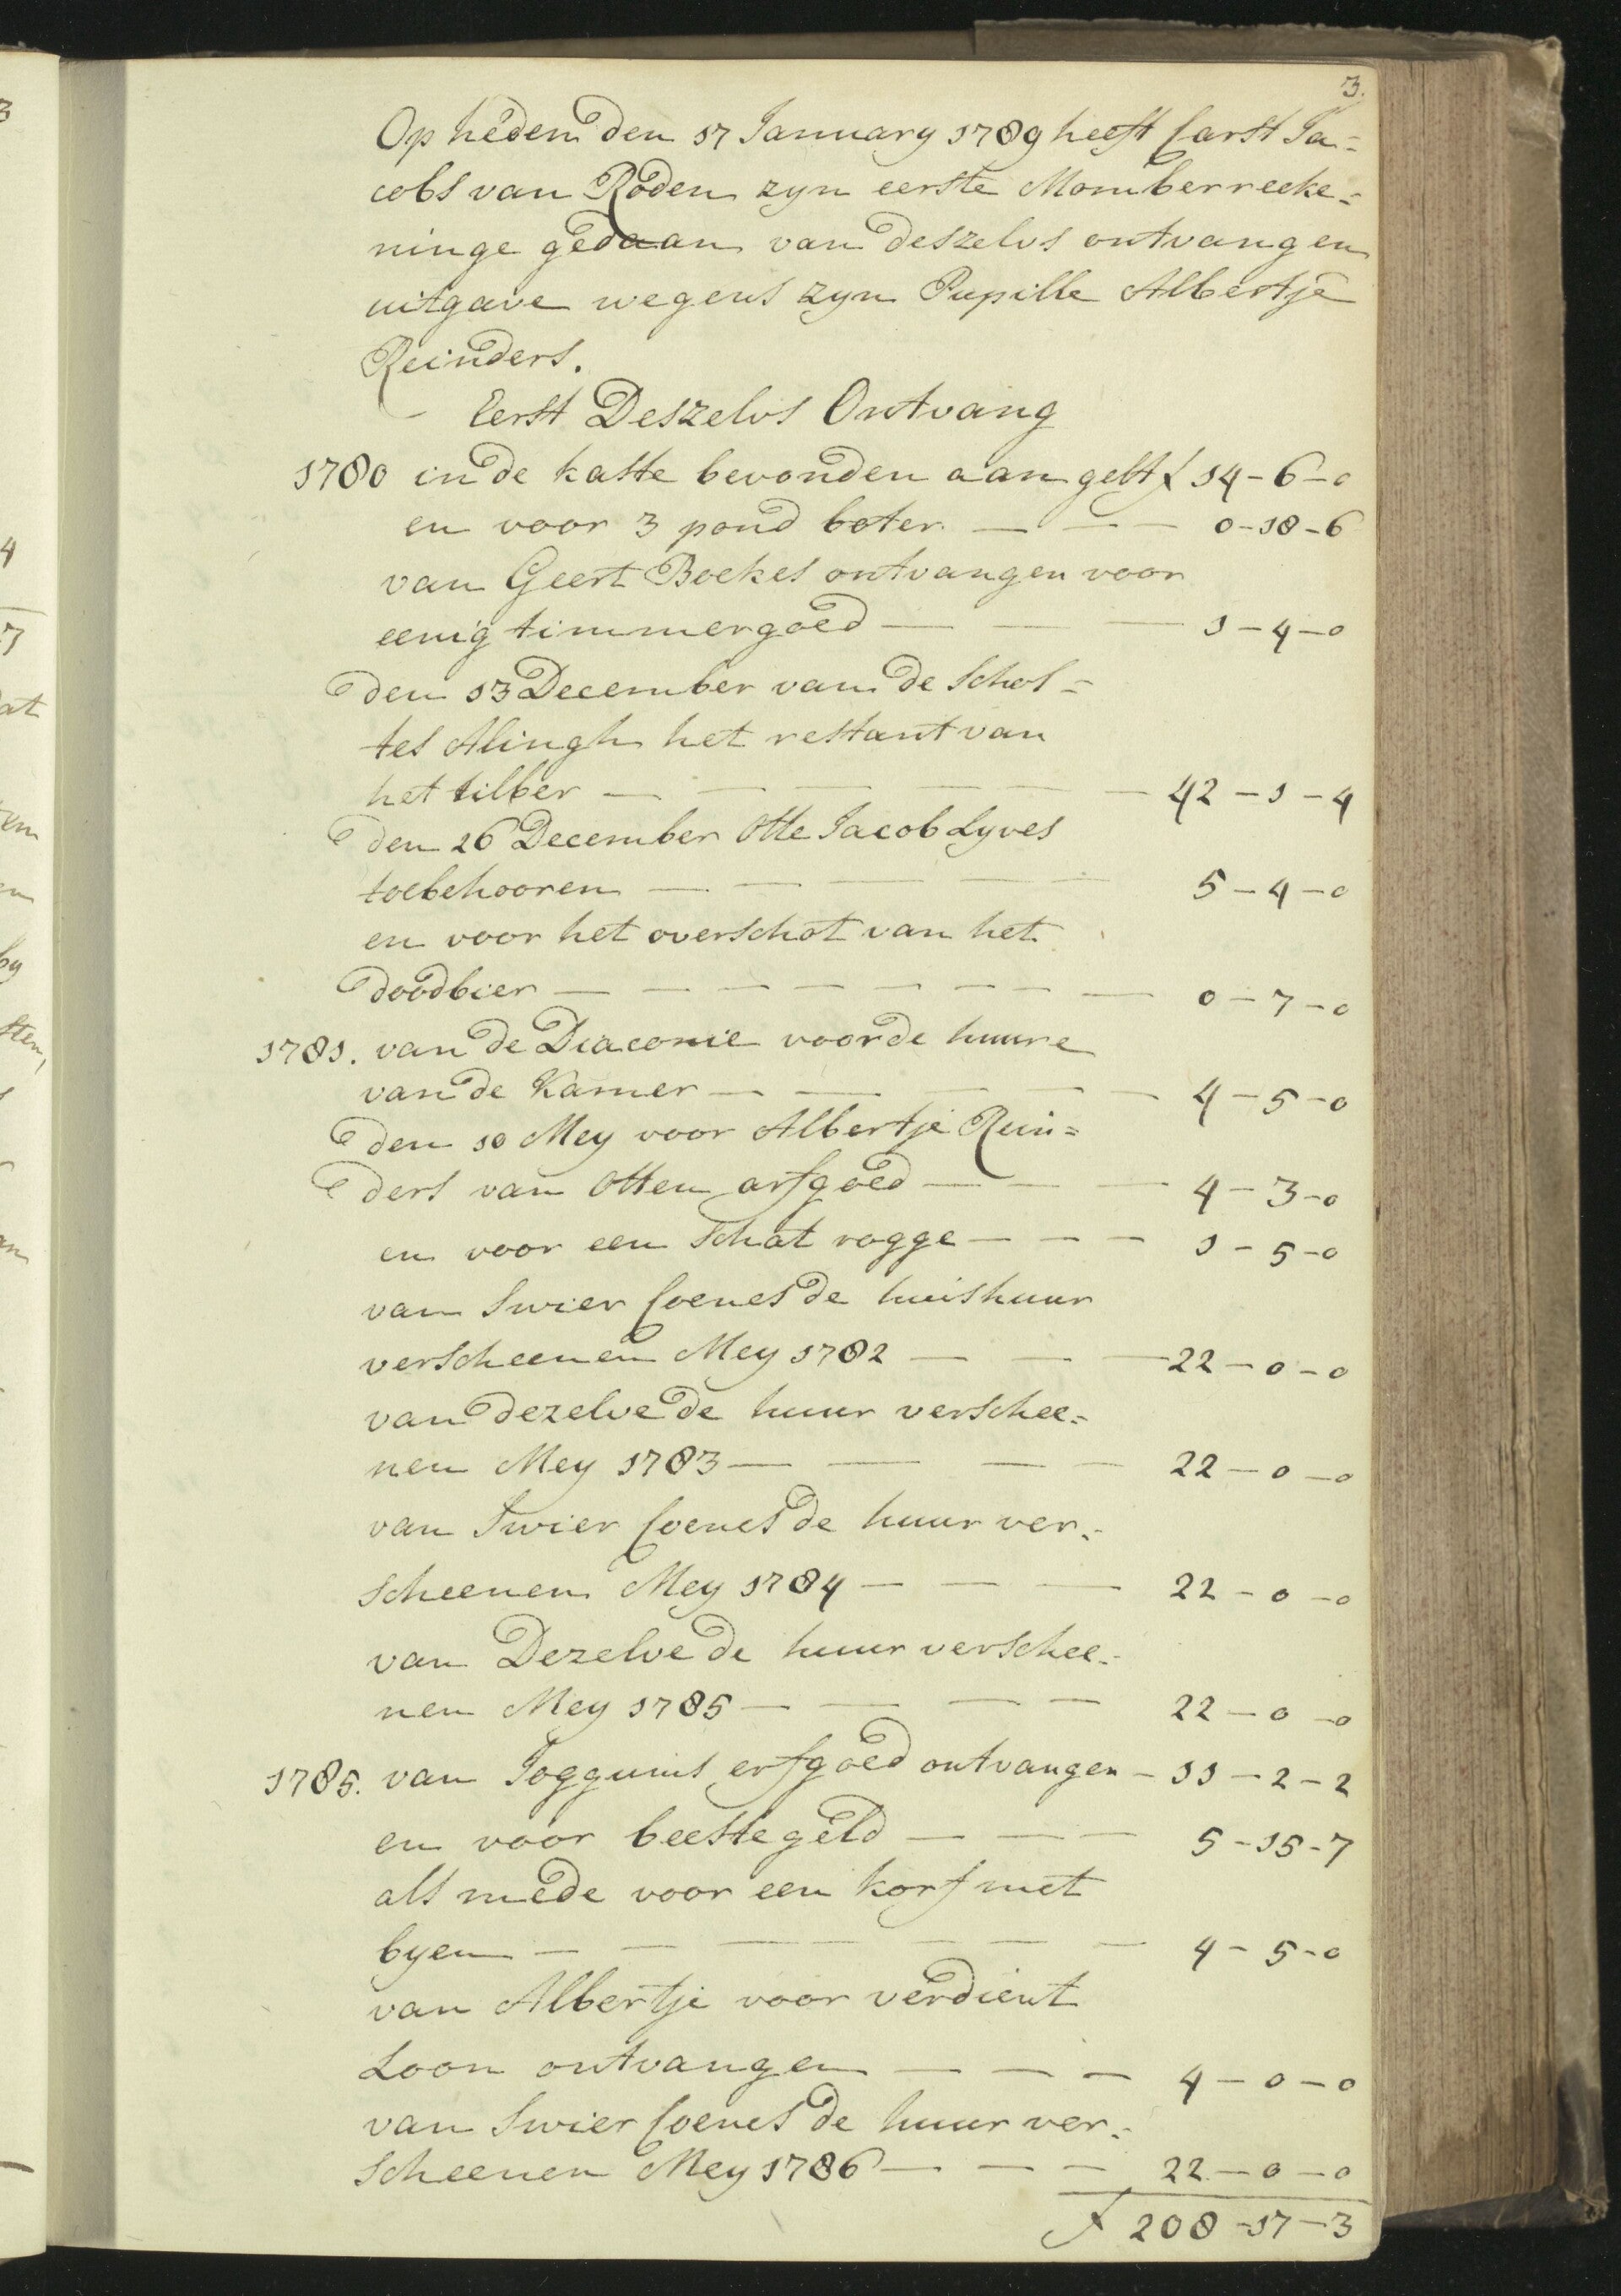 3.
Op heden den 17 January 1789 heeft Carst Ja=
cobs van Roden zyn eerste Momberreeke=
ninge gedaan van deszelvs ontvang en
uitgave wegens zyn Pupille Albertje
Reinders.
Eerst Deszelvs Ontvang
1780 in de kaste bevonden aan gelt f 14-6-0
en voor 3 pond boter — — — 0-18-6
van Geert Boekes ontvangen voor
eenig timmergoed — — — 1-4-0
den 13 December van de Schol=
tes Alingh het restant van
het tilber — — — — — — 42-1-4
den 26 December Otte Jacob Lyves
toebehooren — — — — — 5-4-0
en voor het overschot van het
doodbier — — — — — — — — 0-7-0
1781. van de Diaconie voor de huure
van de Kamer — — — — — 4-5-0
den 10 Mey voor Albertje Rein=
ders van Otten arfgoed — — — 4-3-0
en voor een Schat rogge — — — 1-5-0
van Swier Coenes de huishuur
verscheenen Mey 1782 — — — 22-0-0
van dezelve de huur verschee=
nen Mey 1783 — — — — 22-0-0
van Swier Coenes de huur ver=
scheenen Mey 1784 — — — 22-0-0
van Dezelve de huur verschee=
nen Mey 1785 — — — — 22-0-0
1785. van Joggums erfgoed ontvangen — 11-2-2
en voor beeste geld — — — 5-15-7
als mede voor een korf met
byen — — — — — — — 4-5-0
van Albertje voor verdient
Loon ontvangen — — — 4-0-0
van Swier Coenes de huur ver=
scheenen Mey 1786 — — — 22-0-0
f 208-17-3